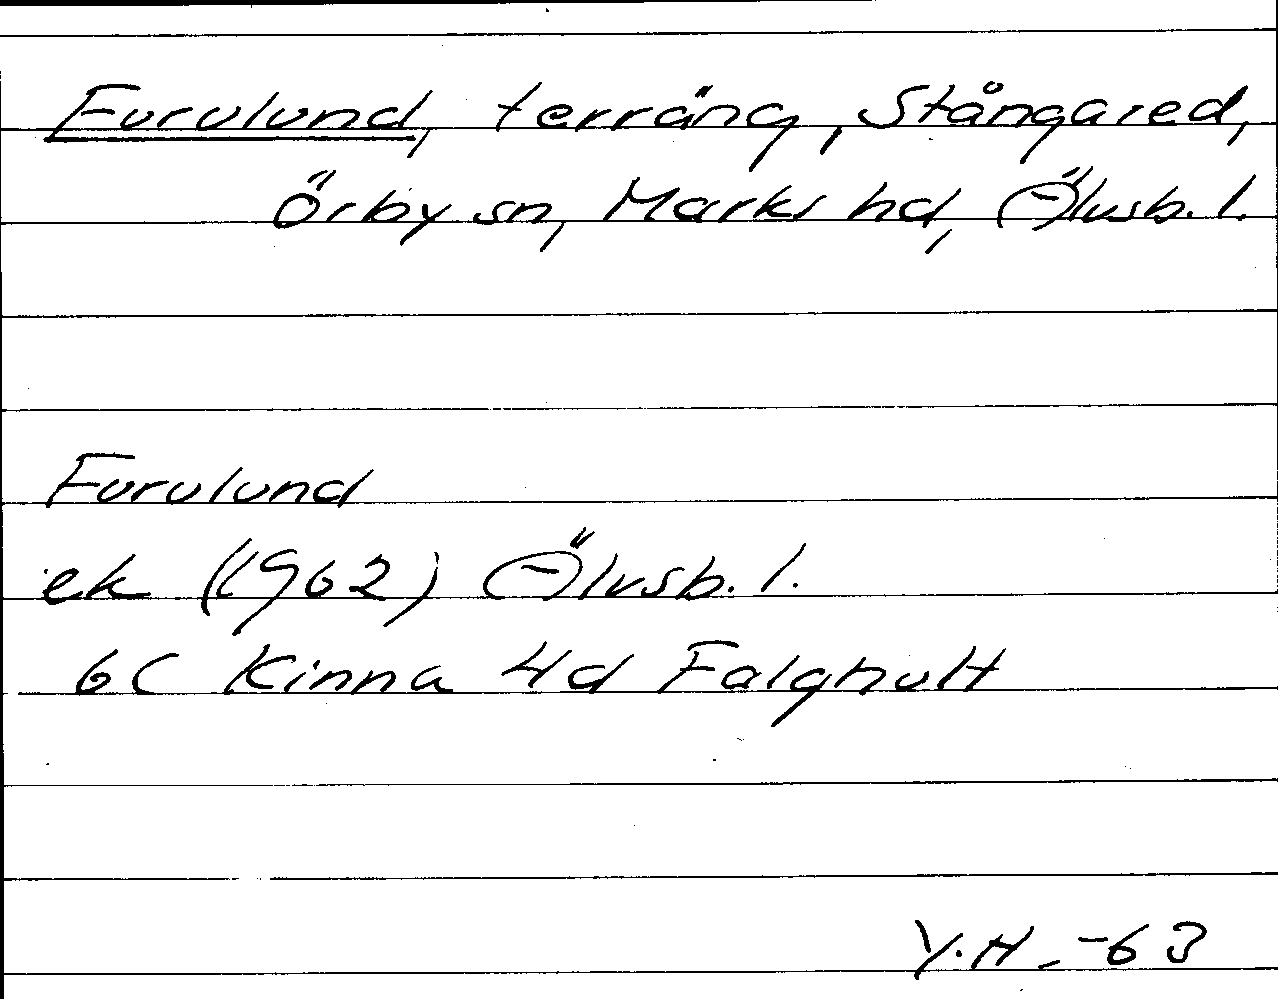 Furulund, terräng, Stångared,
Örby sn, Marks hd, Älvsb. l.
Furulund
ek (1962) Älvsb. l.
6C Kinna 4d Falghult
Y.H. -63